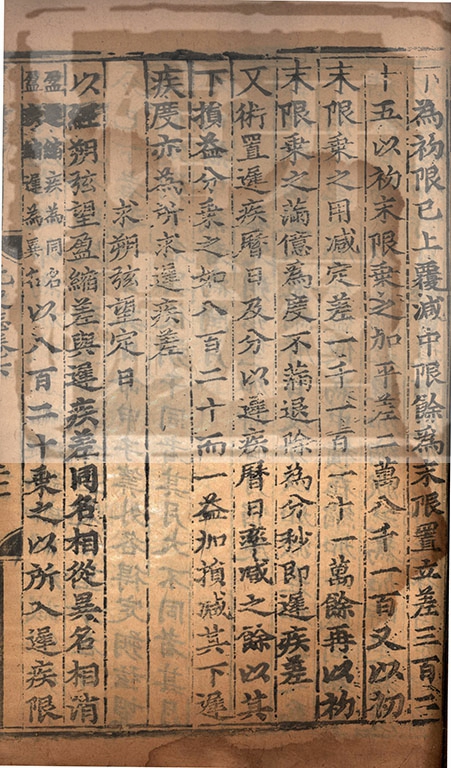 下為初限已上覆減中限餘為末限置立差三百二
十五以初末限乗之加平差二萬八千一百又以初
末限乗之用減定差一千一百一十一萬餘再以初
末限乗之滿億為度不滿退除為分秒即遲疾差
又術置遲疾曆日及分以遲疾曆日率減之餘以其
下損益分乗之如八百二十而一益加損減其下遲
疾度亦為所求遲疾差
求朔弦望定日
以經朔弦望盈縮差與遲疾差同名相從異名相消
盈遲縮疾為同名
盈疾縮遲為異名
以八百二十乗之以所入遲疾限